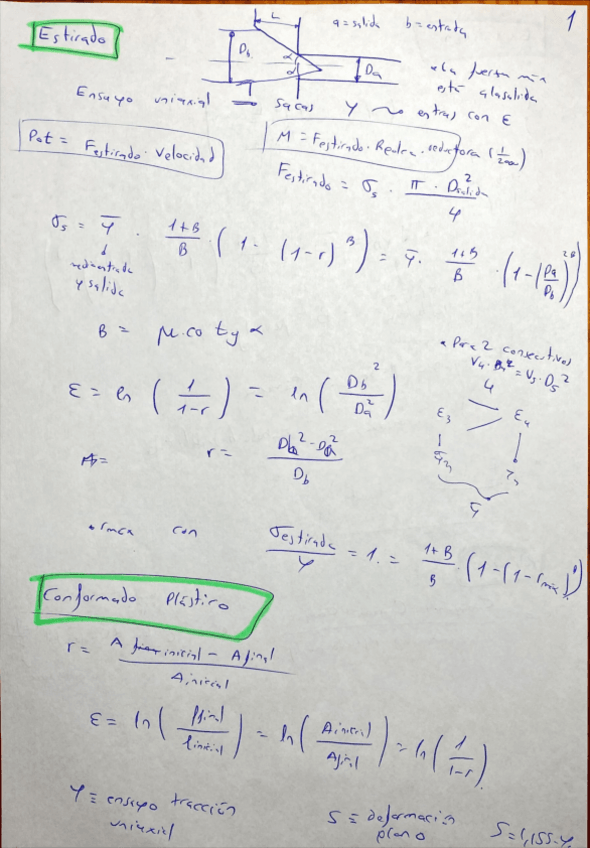 1
Estirado
L
a = salida b = entrada
Db
α
α
Da
• la fuerza máx
está a la salida
Ensayo uniaxial → sacas Y ~ entras con ε
Pot = Festirado · velocidad
M = Festirado · Rbobina · reductora
Festirado = σs · π · D²salida / 4
σs = Ȳ · (1+B)/B · (1 - (1-r)^B) = Ȳ · (1+B)/B · (1 - (Da/Db)^2B)
↓
entrada
y salida
B = μ · cotg α
• Para 2 consecutivos
V4 · D4² = V5 · D5²
4
ε = ln (1/(1-r)) = ln (Db²/Da²)
ε3 ε4
r = (Db² - Da²)/Db
Ȳ
• rmax con σestirado/Y = 1 = (1+B)/B · (1 - (1-rmax)^B)
Conformado Plástico
r = (A inicial - A final)/A inicial
ε = ln (lfinal/linicial) = ln (Ainicial/Afinal) = ln (1/(1-r))
Y ≡ ensayo tracción
uniaxial
S ≡ deformación
plano
S = 1,155 · Y